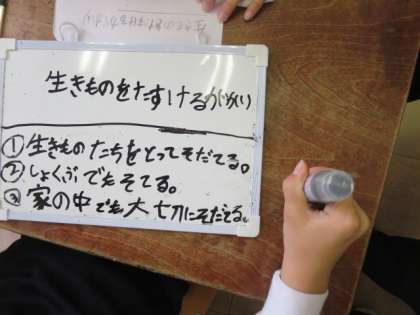 生きものをたすける
①生きものたちをとってそだてる。
②しょくぶでもそてる。
③家の中でも大切にそだてる。